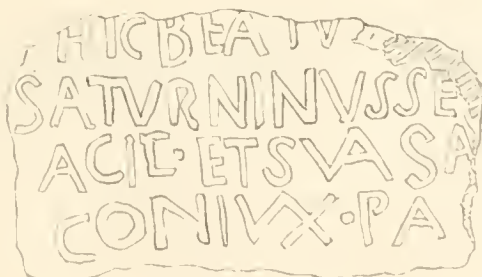 HIC BEATV
SATVRNINVS SE
ACIL · ET SVA SA
CONIVX · PA